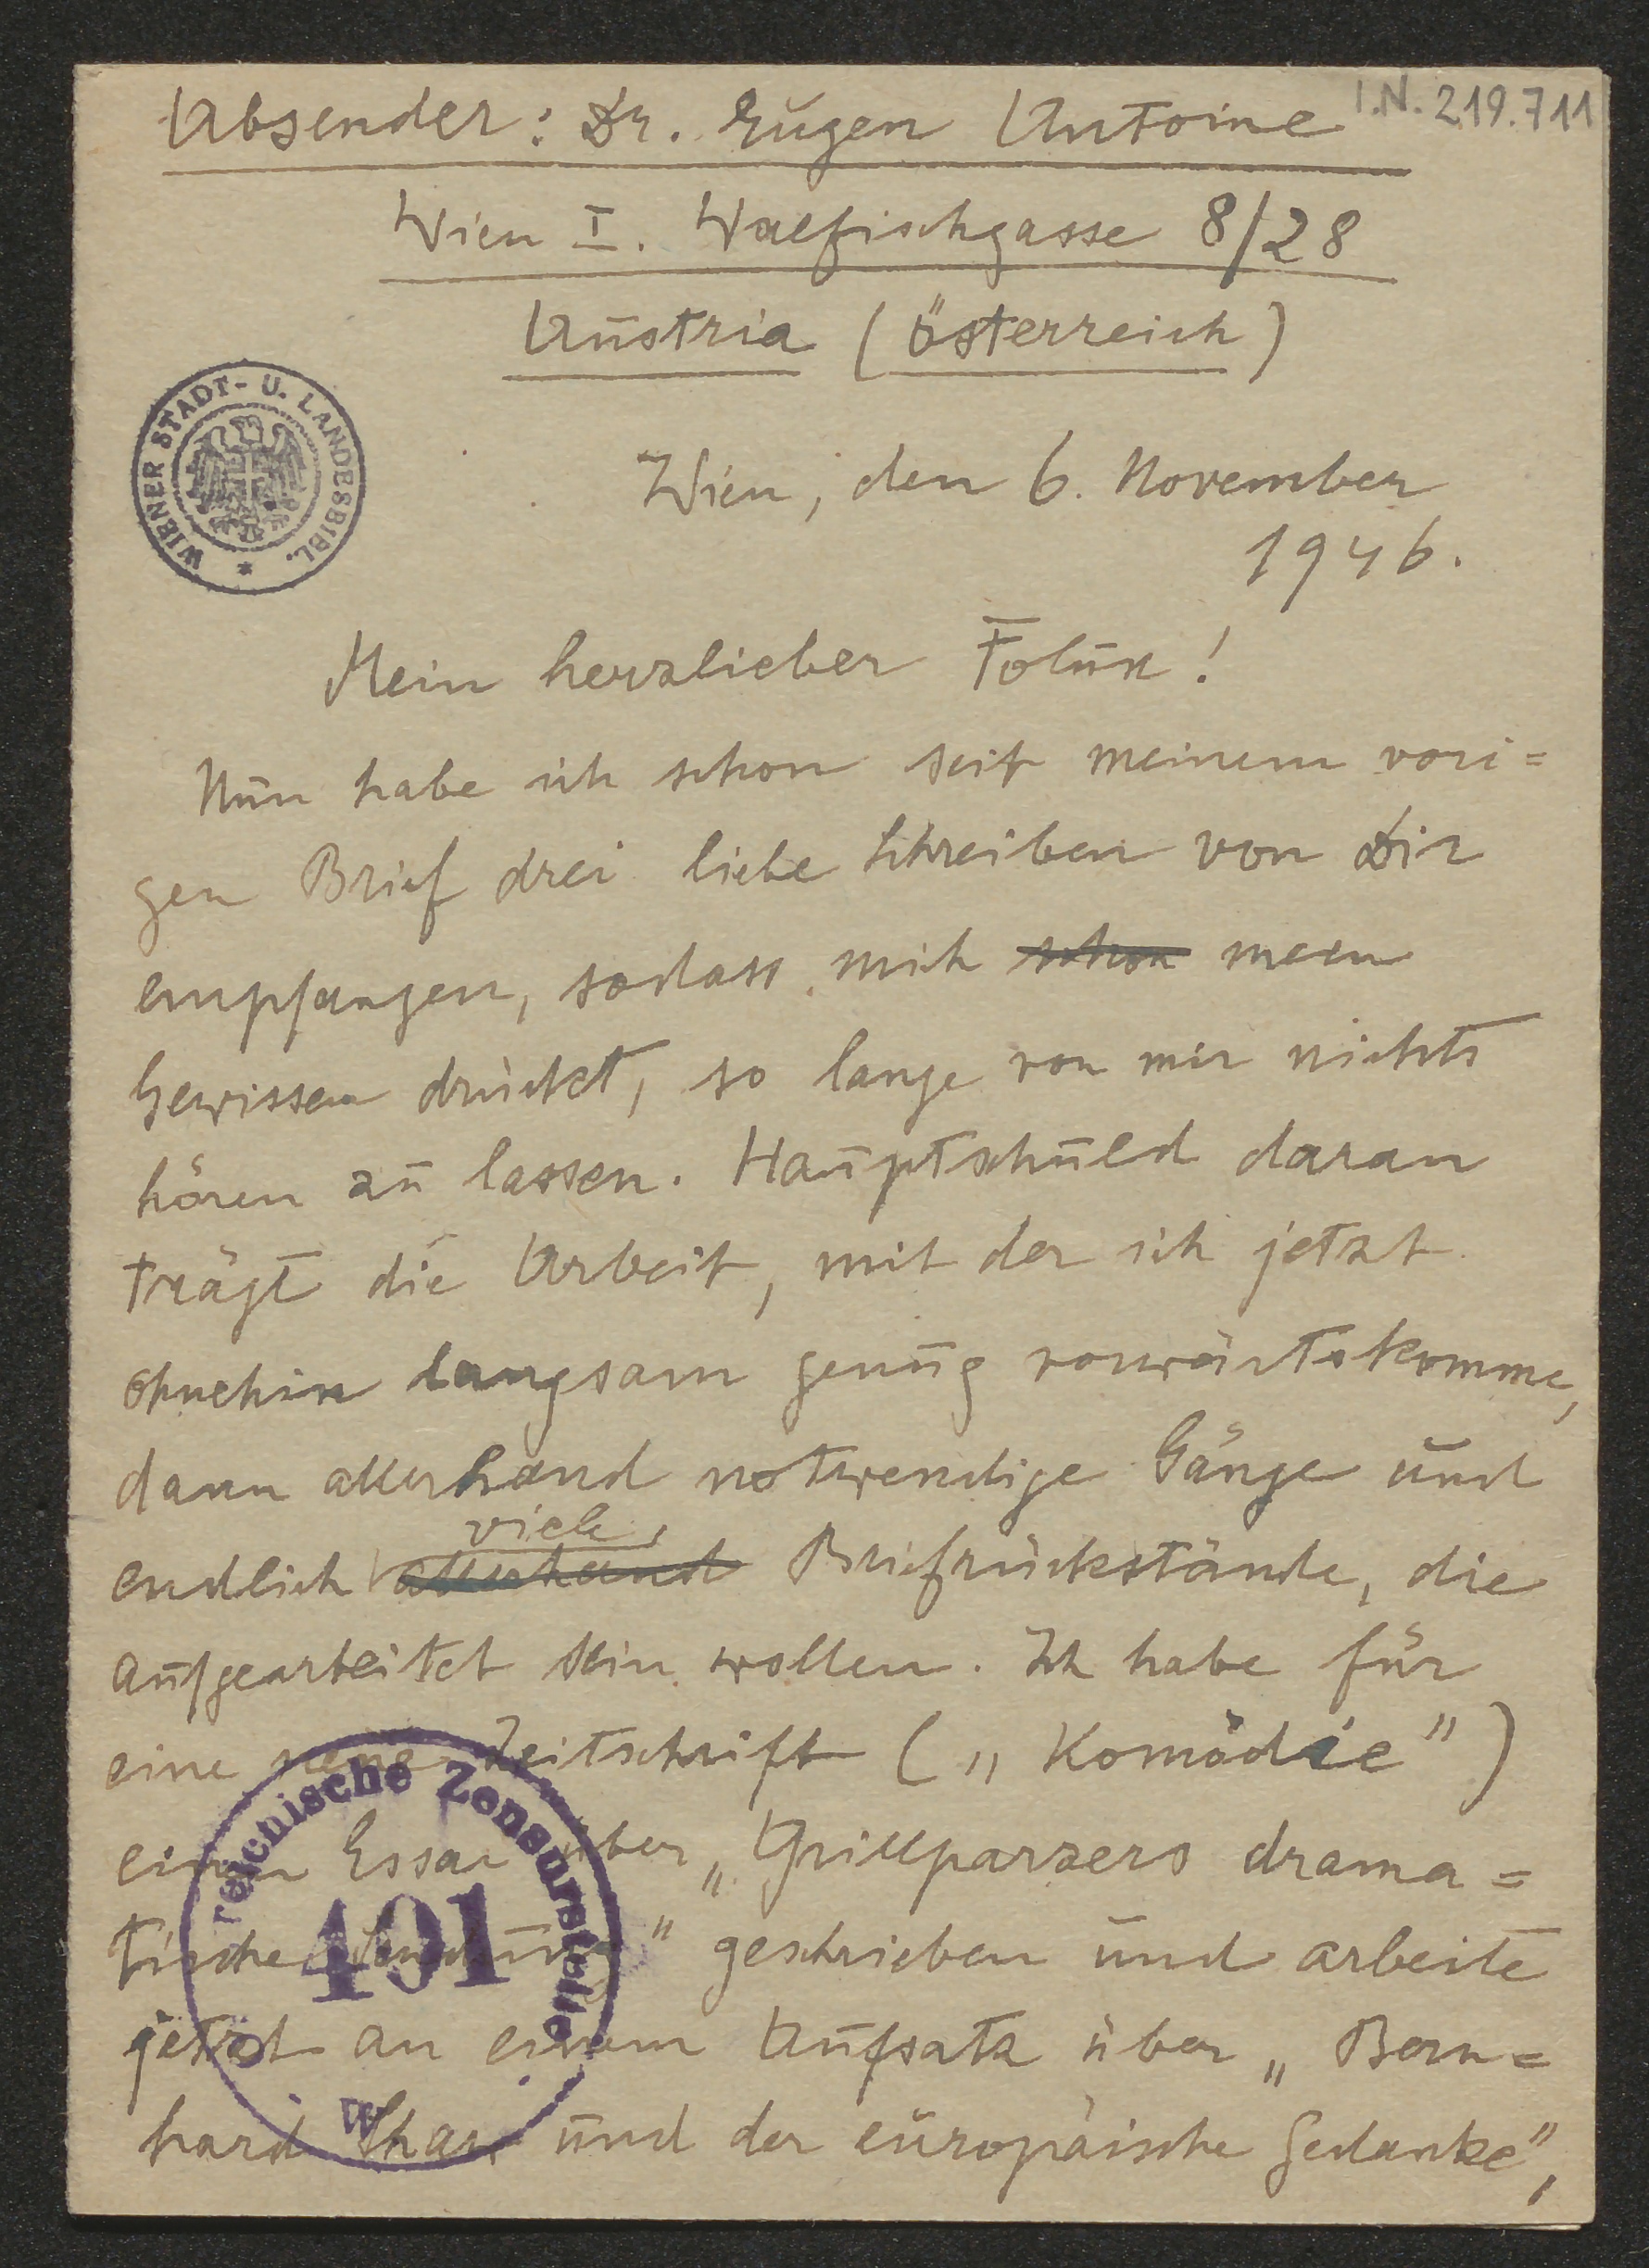 I.N. 219.711
Absender: Dr. Eugen Antoine
Wien I. Walfischgasse 8/28
Austria (Österreich)
WIENER STADT- U. LANDESBIBL.
Wien, den 6. November
1946.
Mein herzlieber Foluk!
Nun habe ich schon seit meinem vori=
gen Brief drei liebe Schreiben von Dir
empfangen, sodass mich schon mein
Gewissen drückt, so lange von mir nichts
hören zu lassen. Hauptschuld daran
trägt die Arbeit, mit der ich jetzt
ohnehin langsam genug vorwärtskomme,
dann allerhand notwendige Gänge und
viele
endlich allerhand Briefrückstände, die
aufgearbeitet sein wollen. Ich habe für
eine neue Zeitschrift („Komödie")
einen Essai über „Grillparzers drama=
tische Sendung" geschrieben und arbeite
jetzt an einem Aufsatz über „Bern=
hard Shaw und der europäische Gedanke",
reichische Zensurstelle
401
W